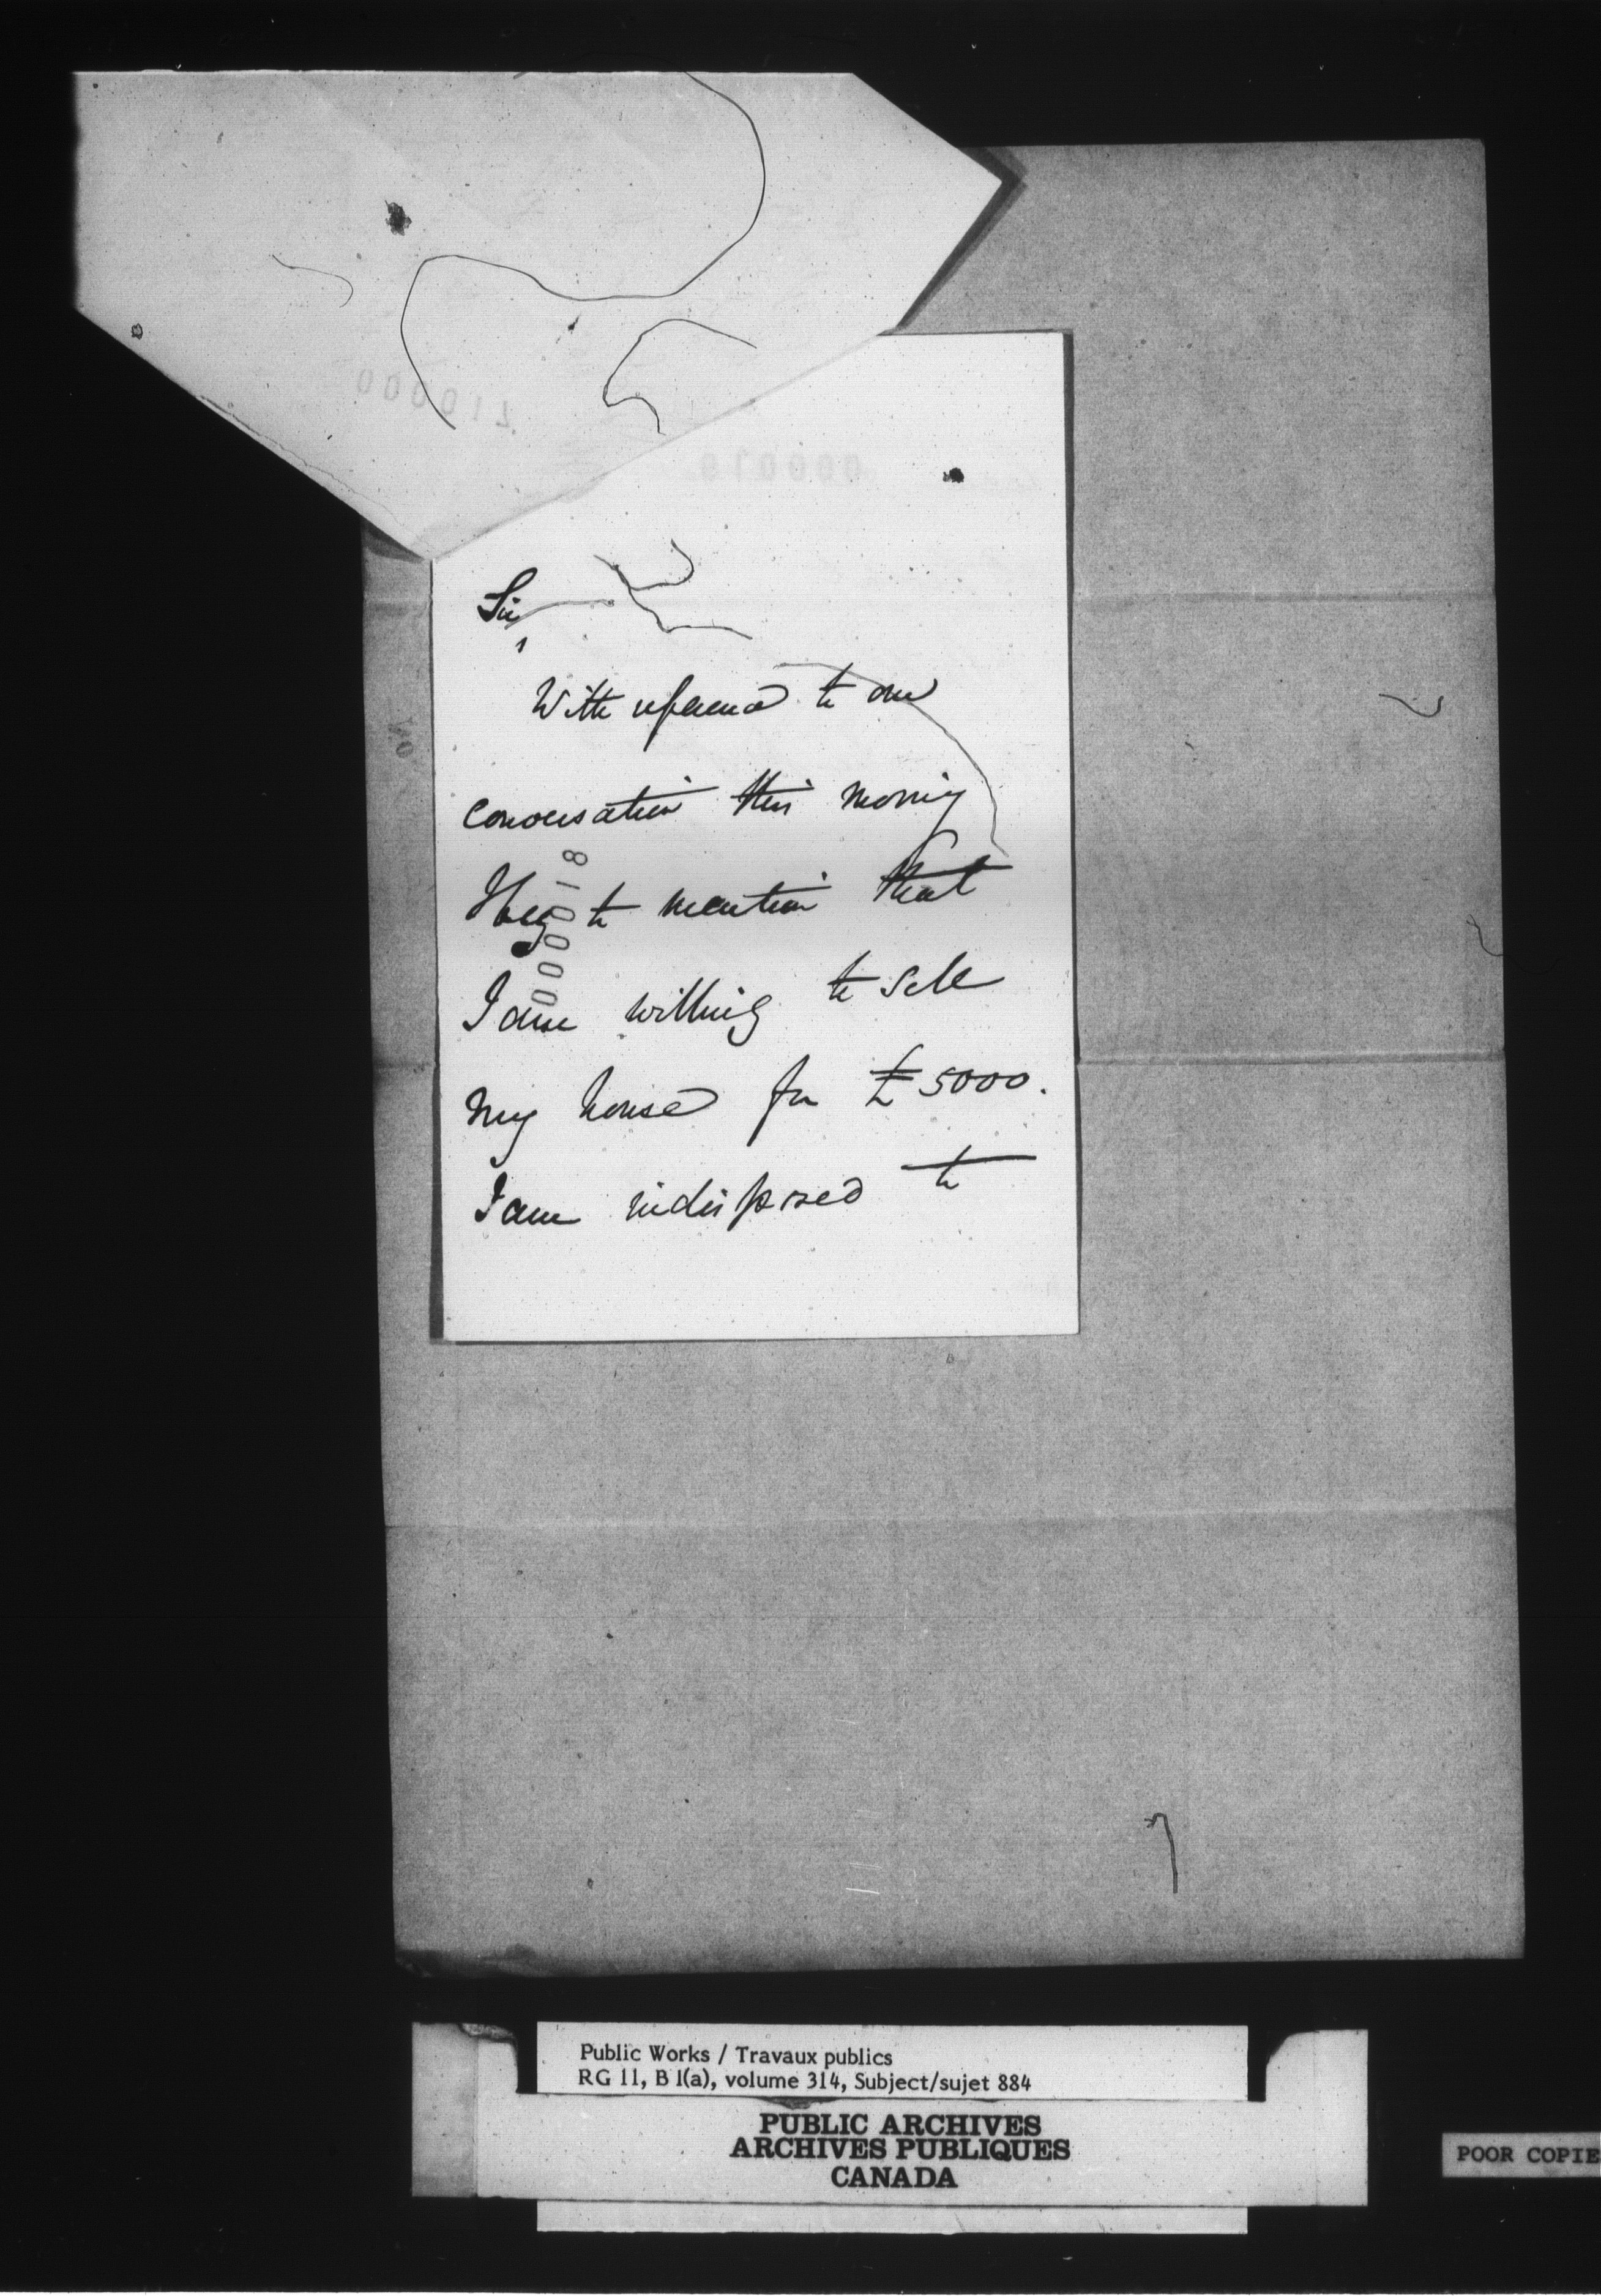 Sir,
With reference to our
conversation this morning
I beg to mention that
I am willing to sell
my house for £5000.
I am indisposed to
000018
Public Works / Travaux publics
RG 11, B 1(a), volume 314, Subject/sujet 884
PUBLIC ARCHIVES
ARCHIVES PUBLIQUES
CANADA
POOR COPIE